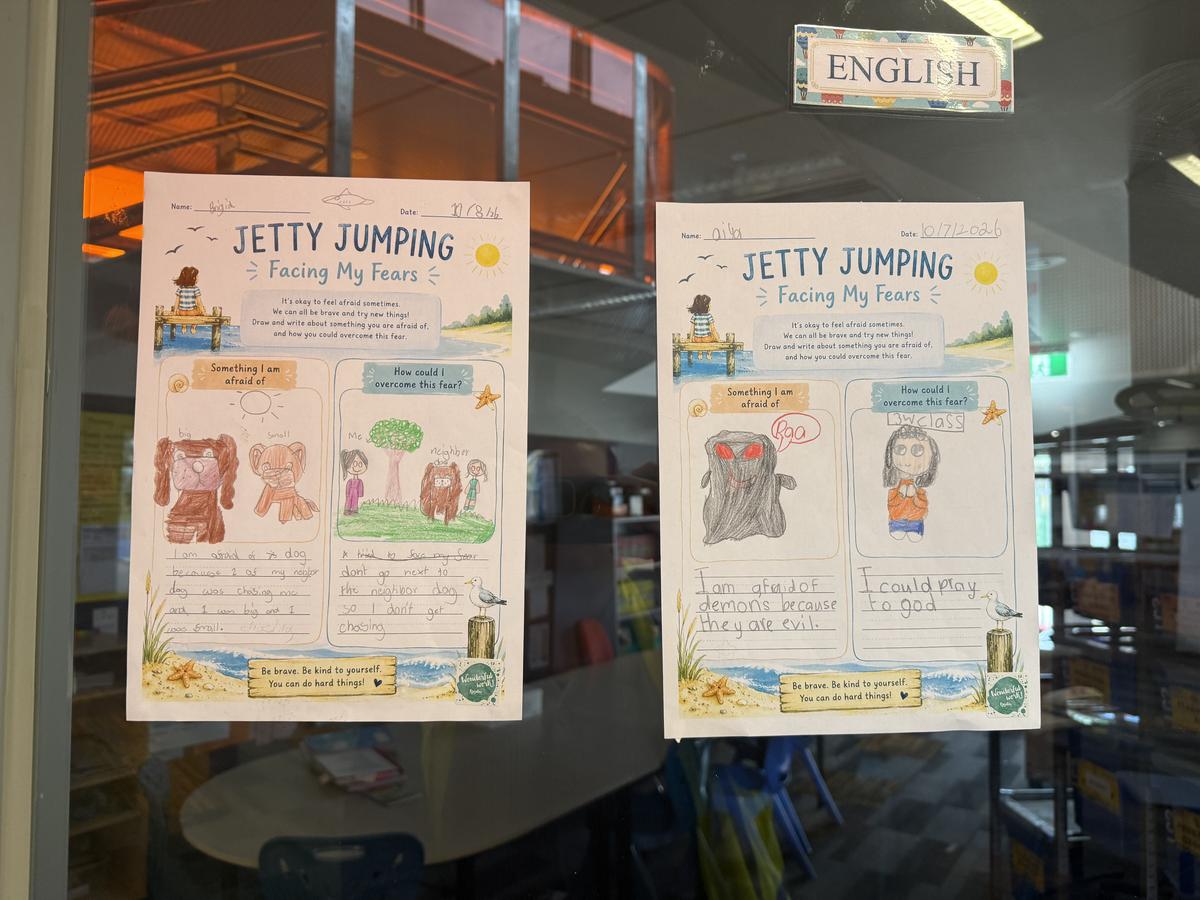 ENGLISH
Name: Brigid
Date: 10/8/26
JETTY JUMPING
Facing My Fears
It's okay to feel afraid sometimes.
We can all be brave and try new things!
Draw and write about something you are afraid of,
and how you could overcome this fear.
Something I am
afraid of
How could I
overcome this fear?
big
small
Me
neighbor
dog
I am afraid of dog
because of my
dog was chasing me
and I was big and I
was small.
dont go next to
the neighbor dog
so I don't get
chasing
Be brave. Be kind to yourself.
You can do hard things!
Wonderful
work!
Name:
Date: 10/7/2026
JETTY JUMPING
Facing My Fears
It's okay to feel afraid sometimes.
We can all be brave and try new things!
Draw and write about something you are afraid of,
and how you could overcome this fear.
Something I am
afraid of
How could I
overcome this fear?
Raa
3W class
I am afraid of
demons because
they are evil.
I could play
to god
Be brave. Be kind to yourself.
You can do hard things!
Wonderful
work!